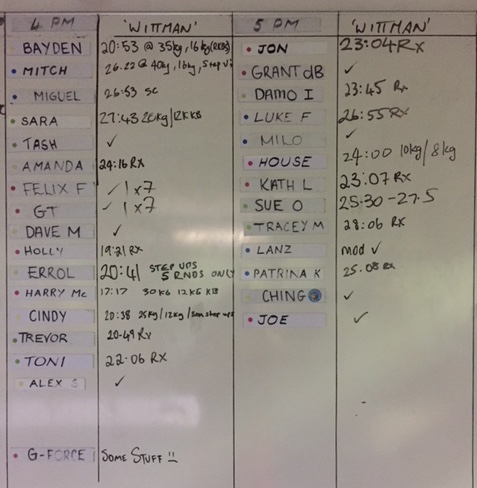 4 PM 'WITTMAN' 5 PM 'WITTMAN'
BAYDEN 20:53 @ 35kg, 16kg (RKBS)
MITCH 26.22 @ 40kg, 16kg, step
MIGUEL 26:53 SC
SARA 27:43 20kg/12K KB
TASH ✓
AMANDA 24:16 RX
FELIX F ✓ 1x7
GT ✓ 1x7
DAVE M ✓
HOLLY 19:21 RX
ERROL 20:41 STEP UPS
5 RNDS ONLY
HARRY Mc 17:17 30KG 12KG KB
CINDY 20:38 25kg/12kg/ step ups
TREVOR 20.49 Rx
TONI 22:06 RX
ALEX S ✓
G-FORCE SOME STUFF !!
JON 23:04 Rx
GRANT dB ✓
DAMO I 23:45 Rx
LUKE F 26:55 RX
MILO ✓
HOUSE 24:00 10kg/8kg
KATH L 23:07 RX
SUE O 25.30 - 27.5
TRACEY M 28:06 RX
LANZ mod ✓
PATRINA K 25.08 RX
CHING ✓
JOE ✓